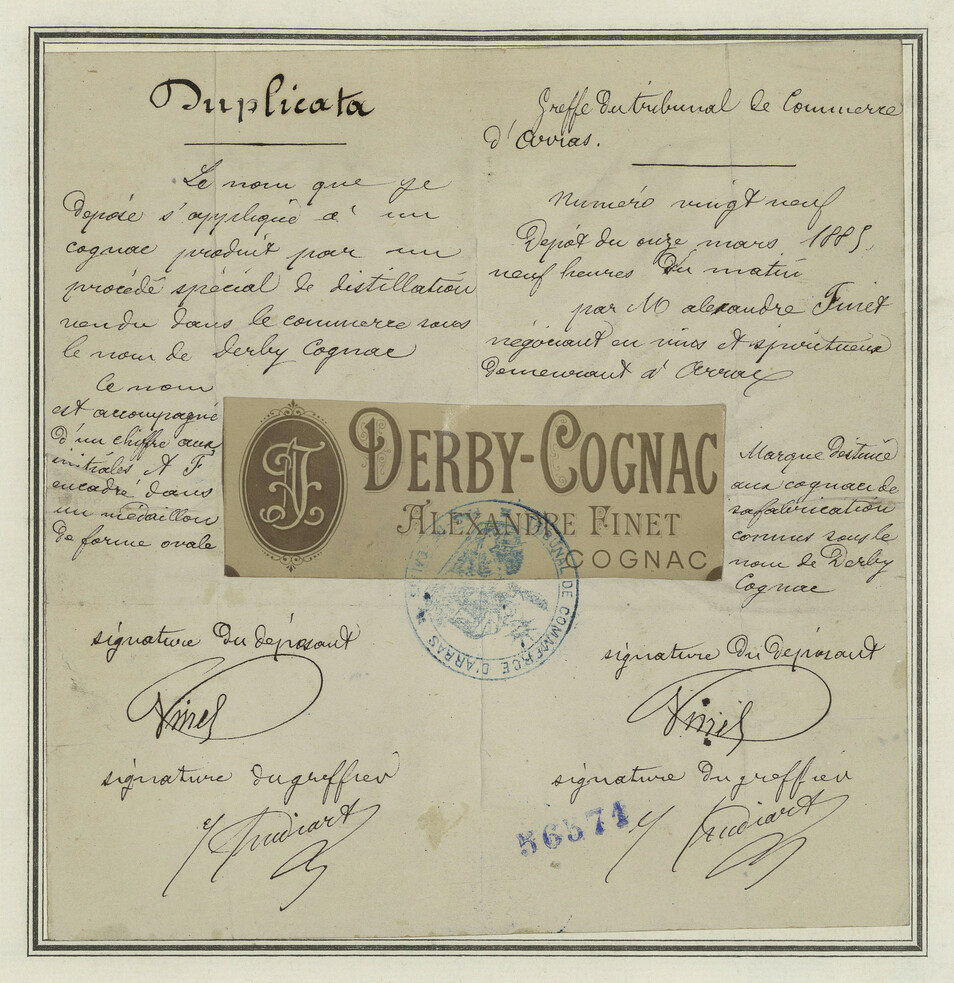 Duplicata
Le nom que je
dépose s'applique à un
cognac produit par un
procédé spécial de distillation
vendu dans le commerce sous
le nom de Derby Cognac
Ce nom
est accompagné
d'un chiffre aux
initiales A F
encadré dans
un médaillon
de forme ovale
signature du déposant
Finet
signature du greffier
Greffe du tribunal de Commerce
d'Arras.
Numéro vingt neuf
Dépôt du onze mars 1885,
neuf heures du matin
par M alexandre Finet
négociant en vins et spiritueux
demeurant à Arras
Marque destinée
aux cognacs de
sa fabrication
connus sous le
nom de Derby
Cognac
signature du déposant
Finet
signature du greffier
56571
AF
DERBY-COGNAC
ALEXANDRE FINET
COGNAC
TRIBUNAL DE COMMERCE D'ARRAS